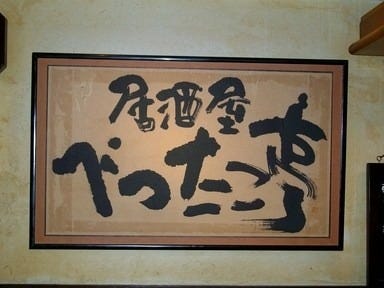 居酒屋
べったこ亭